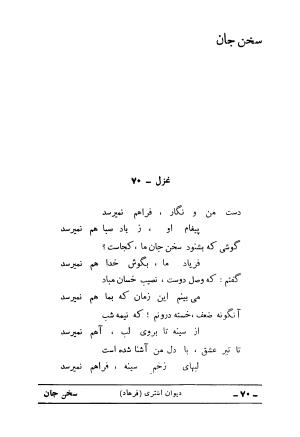 سخن جان
غزل - ۷۰
دست من و نگار ، فراهم نمیرسد
پیغام او ، ز یاد صبا هم نمیرسد
گوشی که بشنود سخن جان ما ، کجاست ؟
فریاد ما ، بگوش خدا هم نمیرسد
گفتم : که وصل دوست ، نصیب خسان مباد
می بینم این زمان که بما هم نمیرسد
آنگونه ضعف ، خسته درونم ؛ که نیمه شب
از سینه تا بروی لب ، آهم نمیرسد
تا تیر عشق ، با دل من آشنا شده است
لبهای زخم سینه ، فراهم نمیرسد
سخن جان
دیوان اشتری (فرهاد)
- ۷۰ -